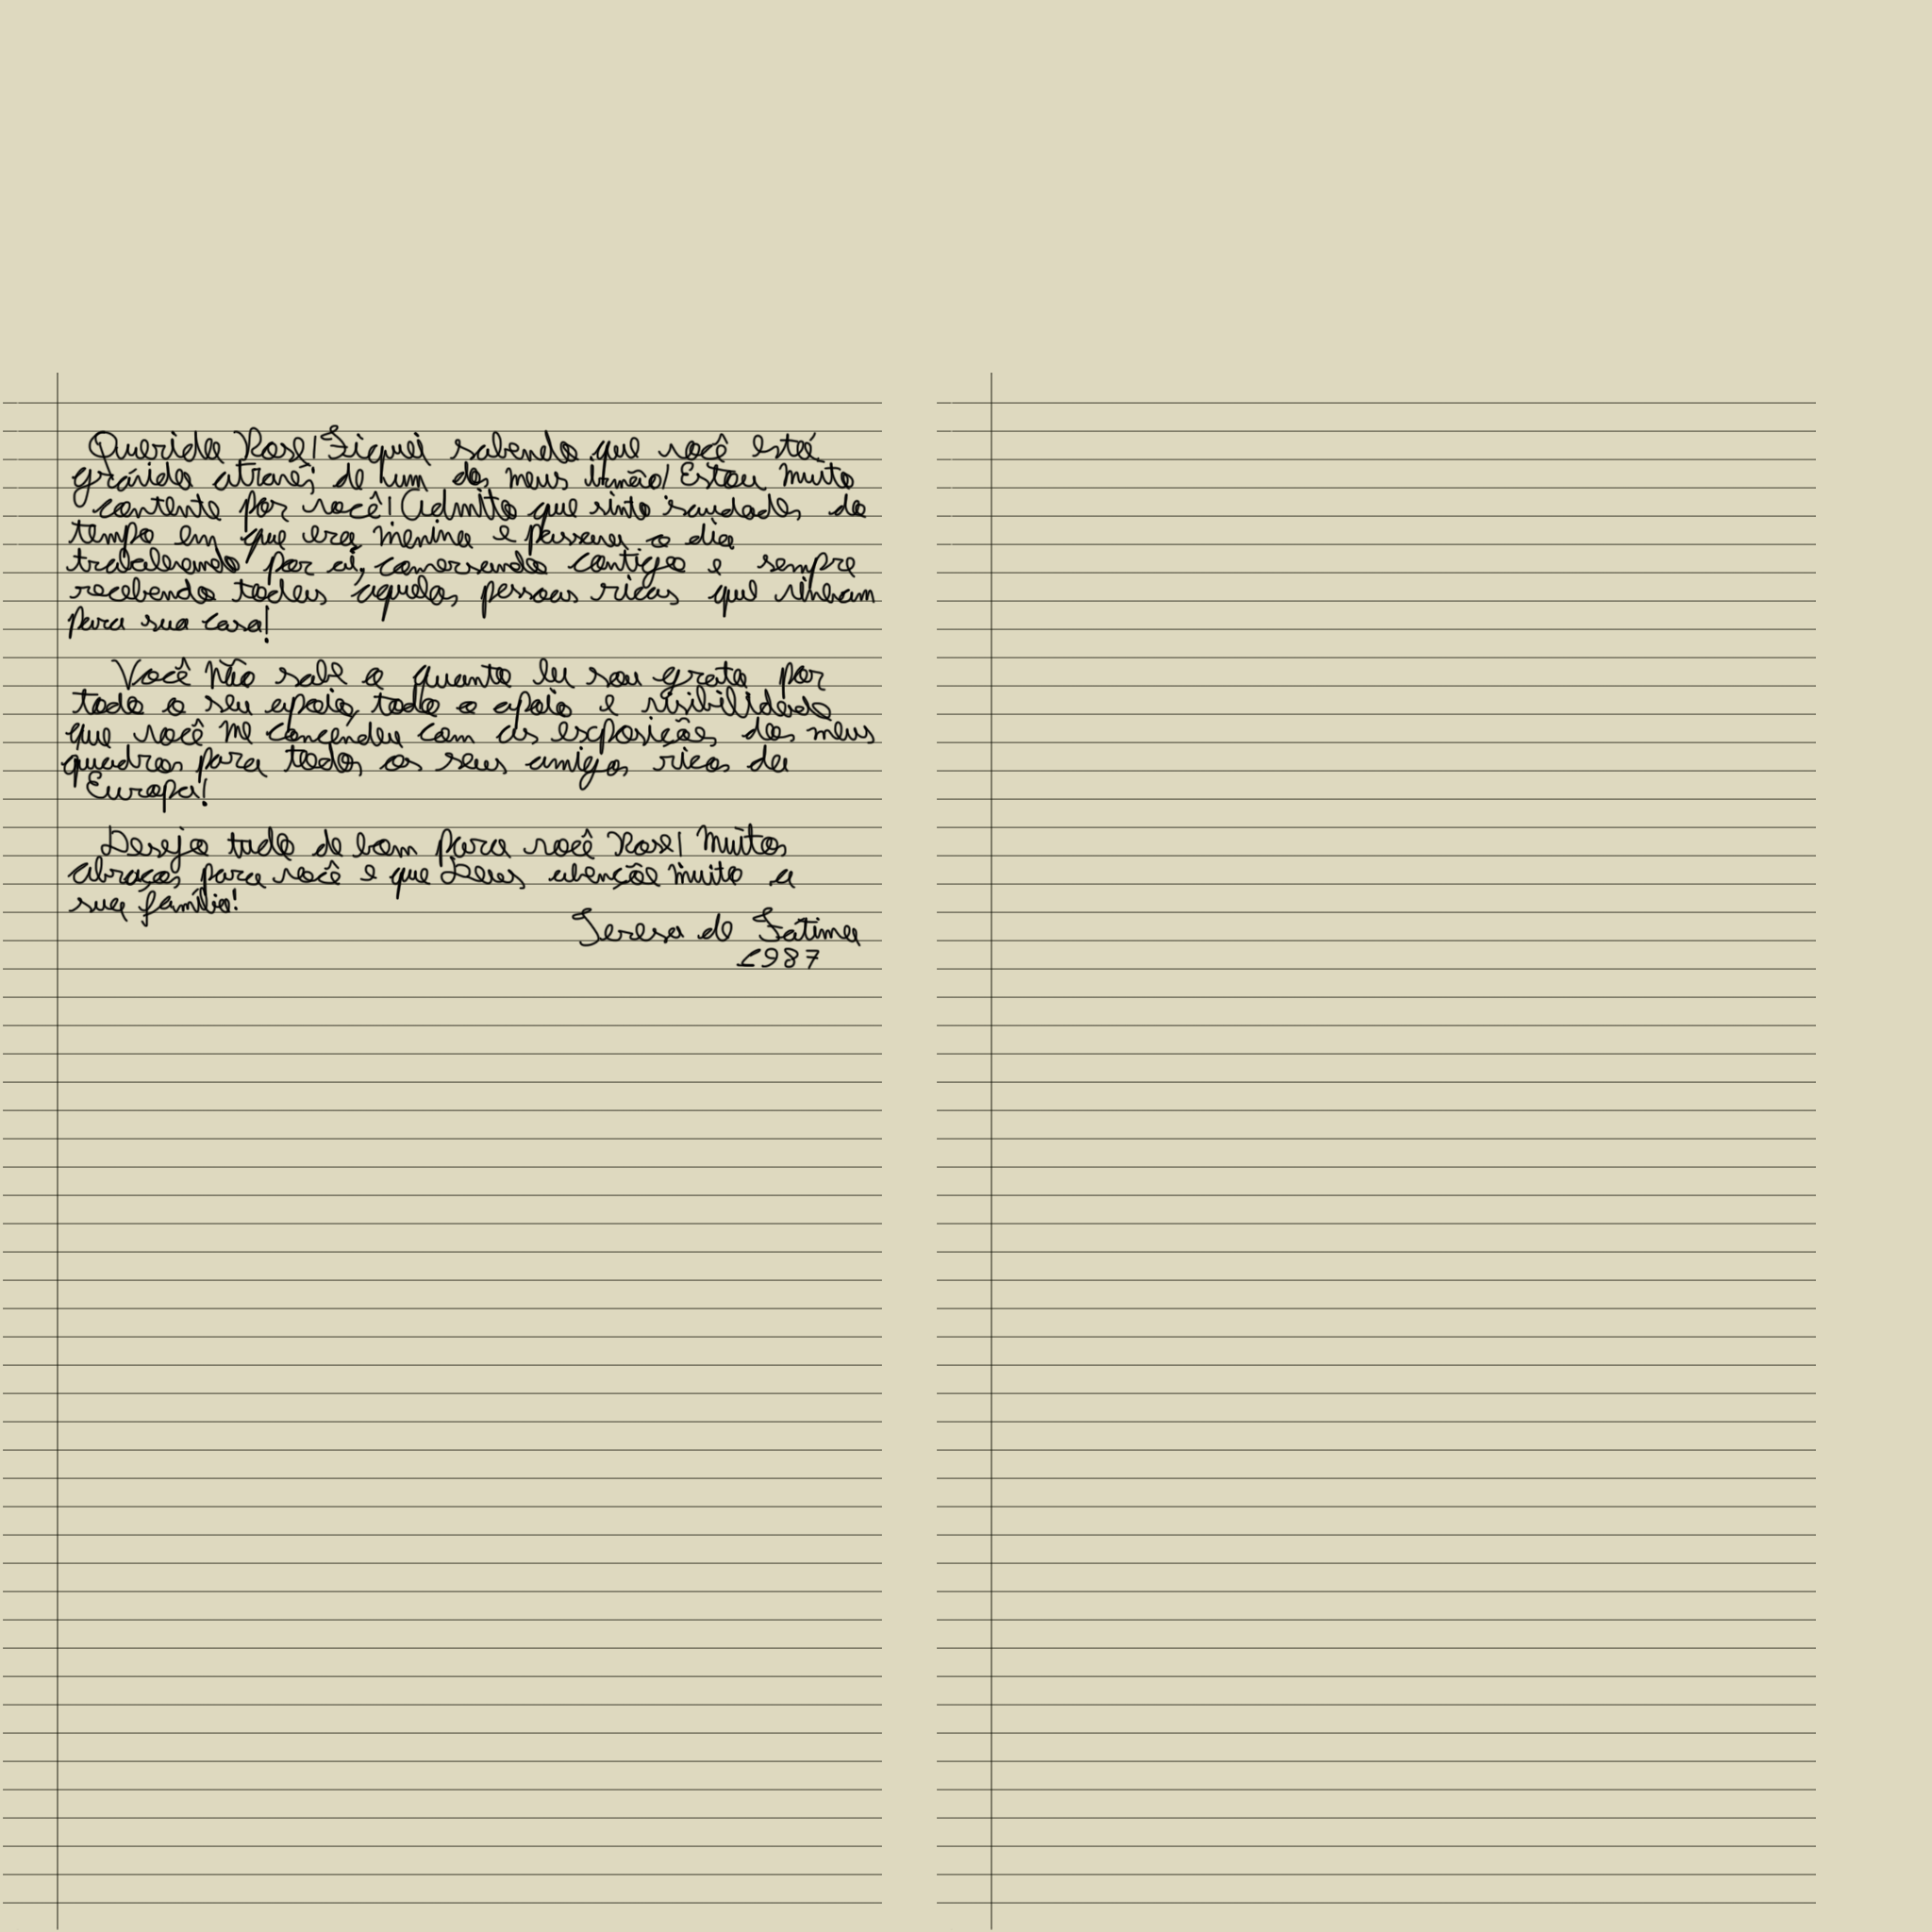 Querida Rose! Fiquei sabendo que você está
grávida através de hum dos meus irmão! Estou muito
contente por você! Admito que sinto saudades do
tempo em que era menina e passava o dia
trabalhando por aí, conversando contigo e sempre
recebendo todas aquelas pessoas ricas que vinham
para sua casa!
Você não sabe o quanto eu sou grata por
todo o seu apoio, todo o apoio e visibilidade
que você me concendeu com as exposições dos meus
quadros para todos os seus amigos ricos da
Europa!
Desejo tudo de bom para você Rose! Muitos
abraços para você e que Deus abençõe muito a
sua família!
Teresa de Fátima
1987